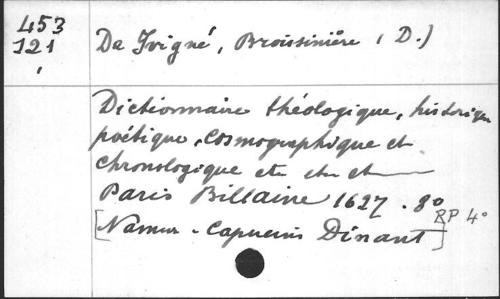 453
121
De Juigné, Broissinière (D.)
Dictionnaire théologique, historique
poétique, cosmographique et
chronologique etc etc etc
Paris Billaine 1627 . 8°
RP 4°
[Namur - Capucins Dinant]